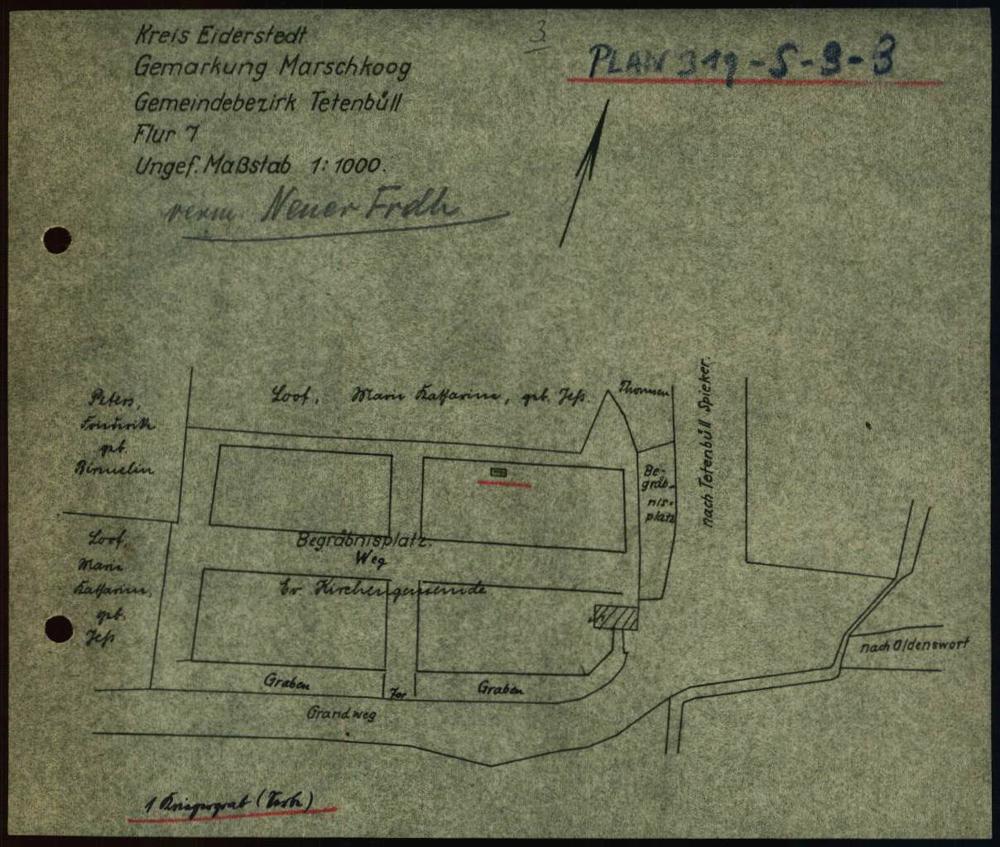 Kreis Eiderstedt
Gemarkung Marschkoog
Gemeindebezirk Tetenbüll
Flur 7
Ungef. Maßstab 1:1000.
Neuer Frdh
3
PLAN 319-5-3-3
Peters,
Friederike
geb.
Loof, Marie Katharina, geb. Jeß
Thomsen
nach Tetenbüll Spieker.
Be-
gräb-
nis-
platz
Loof,
Marie
Katharina,
geb.
Jeß
Begräbnisplatz.
Weg
Ev Kirchengemeinde
Graben
Tor
Graben
Grandweg
nach Oldenswort
1 Kriegergrab